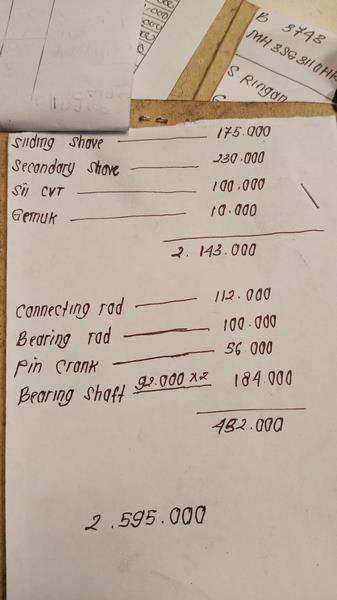 B
S Ringan
Sliding Shave 175.000
Secondary Shave 230.000
Sil CVT 100.000
Gemuk 10.000
2.143.000
Connecting rod 112.000
Bearing rod 100.000
Pin Crank 56.000
Bearing Shaft 92.000 x 2 184.000
452.000
2.595.000